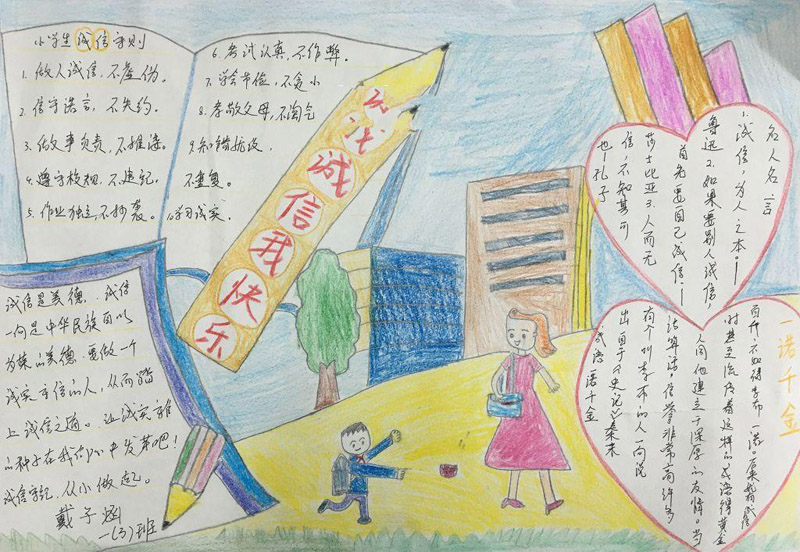 小学生诚信守则
1. 做人诚信，不虚伪。
2. 信守诺言，不失约。
3. 做事负责，不推诿。
4. 遵守校规，不违纪。
5. 作业独立，不抄袭。
6. 考试认真，不作弊。
7. 学会节俭，不贪小
8. 孝敬父母，不淘气
9. 知错就改，
不重复。
10. 学习诚实.
诚信我快乐
诚信是美德，诚信
一向是中华民族自以
为荣的美德，要做一个
诚实守信的人，从而踏
上诚信之道。让诚实
的种子在我们心中发芽吧！
诚信守纪，从小做起。
戴子
一(3)班
名人名言
1.诚信，为人之本。—
鲁迅 2.如果要别人诚信，
首先要自己诚信！—
莎士比亚 3.人而无
信，不知其可
也！孔子
一诺千金
成语一诺千金
出自于《史记》秦末
有个叫季布的人一向说
话算话，信誉非常高许多
人同他建立了深厚的友情。当
时甚至流传着这样的成语得黄金
百斤，不如得季布一诺。